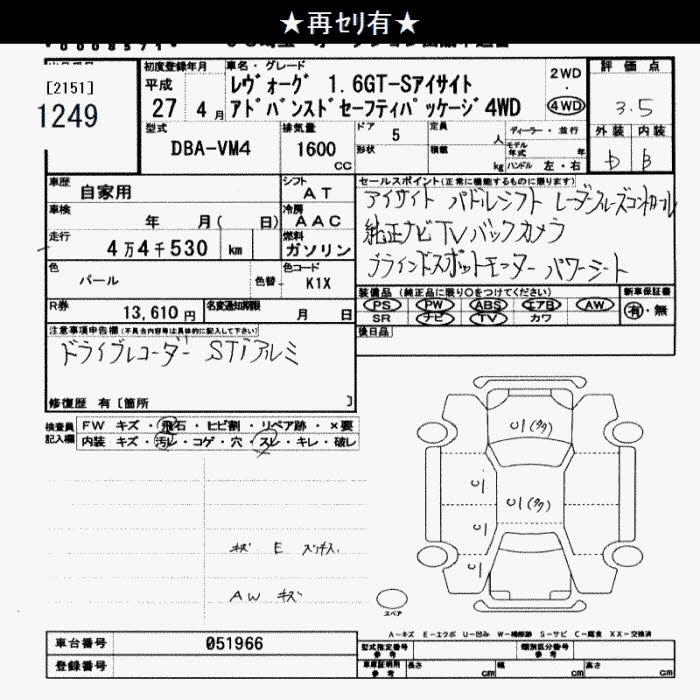 ★再ｾﾘ有★
[2151]
1249
初度登録年月
平成
27 4月
車名・グレード
レヴォーグ 1.6GT-Sアイサイト
アドバンスドセーフティパッケージ4WD
2WD
・
4WD
評価点
3.5
外装 内装
D B
型式
DBA-VM4
排気量
1600
CC
ドア
5
定員
人
形状
積載
kg
ディーラー・並行
モデル年式 年
ハンドル 左・右
車歴
自家用
シフト
AT
車検
年 月( 日)
冷房
AAC
走行
4万4千530 km
燃料
ガソリン
色
パール
色替
色コード
K1X
R券
13,610円
名変通知期限
月 日
セールスポイント(正常に機能するものに限ります)
アイサイト パドルシフト レーダークルーズコントロール
純正ナビTVバックカメラ
ブラインドスポットモニター パワーシート
装備品(純正品に限り○をつけてください)
PS PW ABS エアB AW
SR ナビ TV カワ
新車保証書
有・無
後日品
注意事項申告欄(不具合内容等は具体的に記入して下さい)
ドライブレコーダー STiアルミ
修復歴 有 [箇所 ]
検査員
記入欄
FW キズ・飛石・ヒビ割・リペア跡・×要
内装 キズ・汚レ・コゲ・穴・スレ・キレ・破レ
キズ E
AW キズ
U1(タタ)
U1(タタ)
U1
U1
U1
スペア
A-キズ E-エクボ U-凹み W-補修跡 S-サビ C-腐食 XX-交換済
車台番号
051966
登録番号
型式指定番号
参考
類別区分番号
参考
車庫証明用
参考
長さ cm 幅 cm 高さ cm